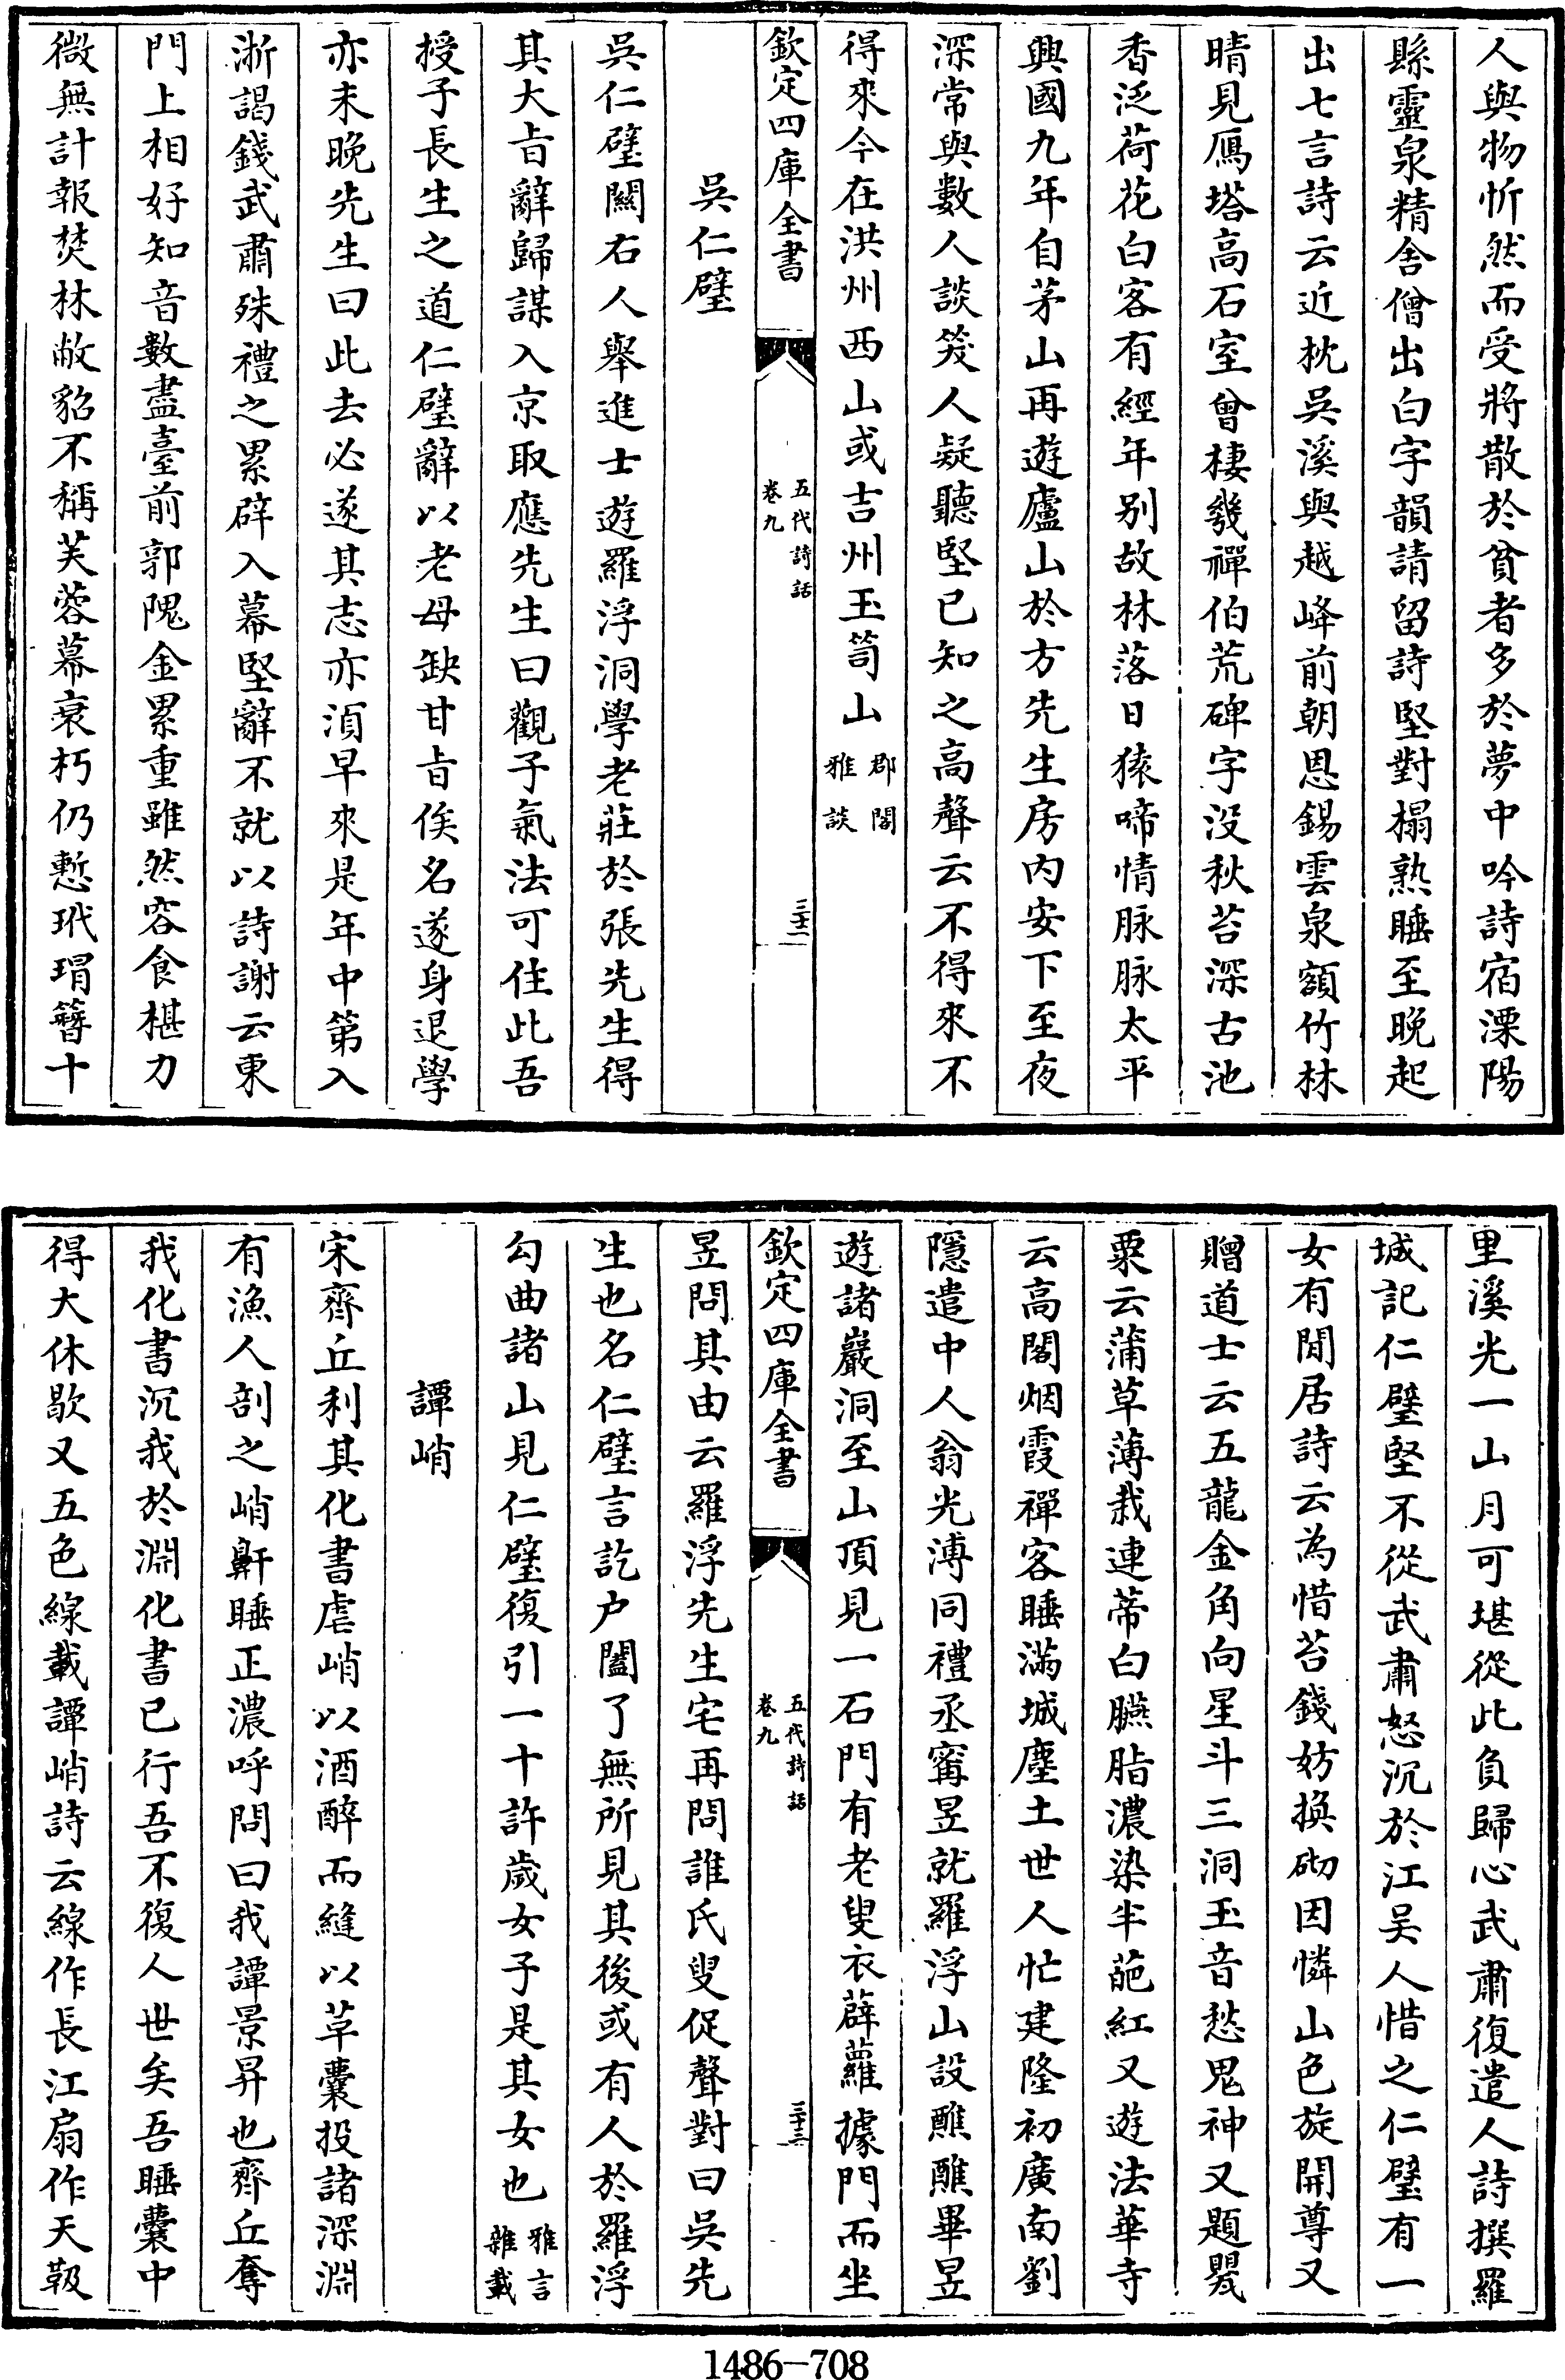 人與物忻然而受將散於貧者多於夢中吟詩宿溧陽
縣靈泉精舍僧出白字韻請留詩堅對榻熟睡至晚起
出七言詩云近枕吳溪與越峰前朝恩錫雲泉額竹林
晴見鴈塔高石室曾棲幾禪伯荒碑字没秋苔深古池
香泛荷花白客有經年别故林落日猿啼情脉脉太平
興國九年自茅山再遊廬山於方先生房内安下至夜
深常與數人談笑人疑聽堅已知之高聲云不得來不
得來今在洪州西山或吉州玉笥山郡閣
雅談
欽定四庫全書
五代詩話
卷九
三十二
吳仁璧
吳仁璧關右人舉進士遊羅浮洞學老莊於張先生得
其大㫖辭歸謀入京取應先生曰觀子氣法可住此吾
授子長生之道仁璧辭以老母缺甘㫖俟名遂身退學
亦未晚先生曰此去必遂其志亦湏早來是年中第入
浙謁錢武肅殊禮之累辟入幕堅辭不就以詩謝云東
門上相好知音數盡臺前郭隗金累重雖然容食椹力
微無計報焚林敝貂不稱芙蓉幕衰朽仍慙玳瑁簪十
里溪光一山月可堪從此負歸心武肅復遣人詩撰羅
城記仁璧堅不從武肅怒沉於江吴人惜之仁璧有一
女有閒居詩云為惜苔錢妨換砌因憐山色旋開尊又
贈道士云五龍金角向星斗三洞玉音愁鬼神又題罌
粟云蒲草薄裁連蒂白臙脂濃染半葩紅又遊法華寺
云高閣烟霞禪客睡滿城塵土世人忙建隆初廣南劉
隱遣中人翁光溥同禮丞甯昱就羅浮山設醮醮畢昱
遊諸巖洞至山頂見一石門有老叟衣薜蘿據門而坐
欽定四庫全書
五代詩話
卷九
三十三
昱問其由云羅浮先生宅再問誰氏叟促聲對曰吳先
生也名仁璧言訖户闔了無所見其後或有人於羅浮
勾曲諸山見仁璧復引一十許歲女子是其女也雅言
雜載
譚峭
宋齊丘利其化書虐峭以酒醉而縫以草囊投諸深淵
有漁人剖之峭鼾睡正濃呼問曰我譚景昇也齊丘奪
我化書沉我於淵化書已行吾不復人世矣吾睡囊中
得大休歇又五色線載譚峭詩云線作長江扇作天靸
1486-708